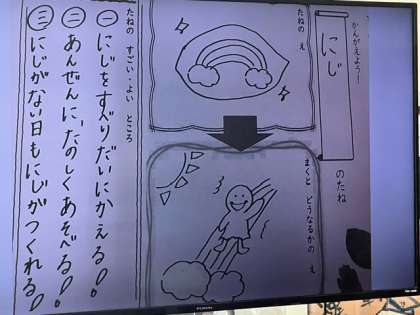 かんがえよう！
にじ
のたね
たねの え
まくと どうなるかの え
たねの すごい・よい ところ
一 にじをすべりだいにかえる！
二 あんぜんに、たのしくあそべる！
三 にじがない日もにじがつくれる！